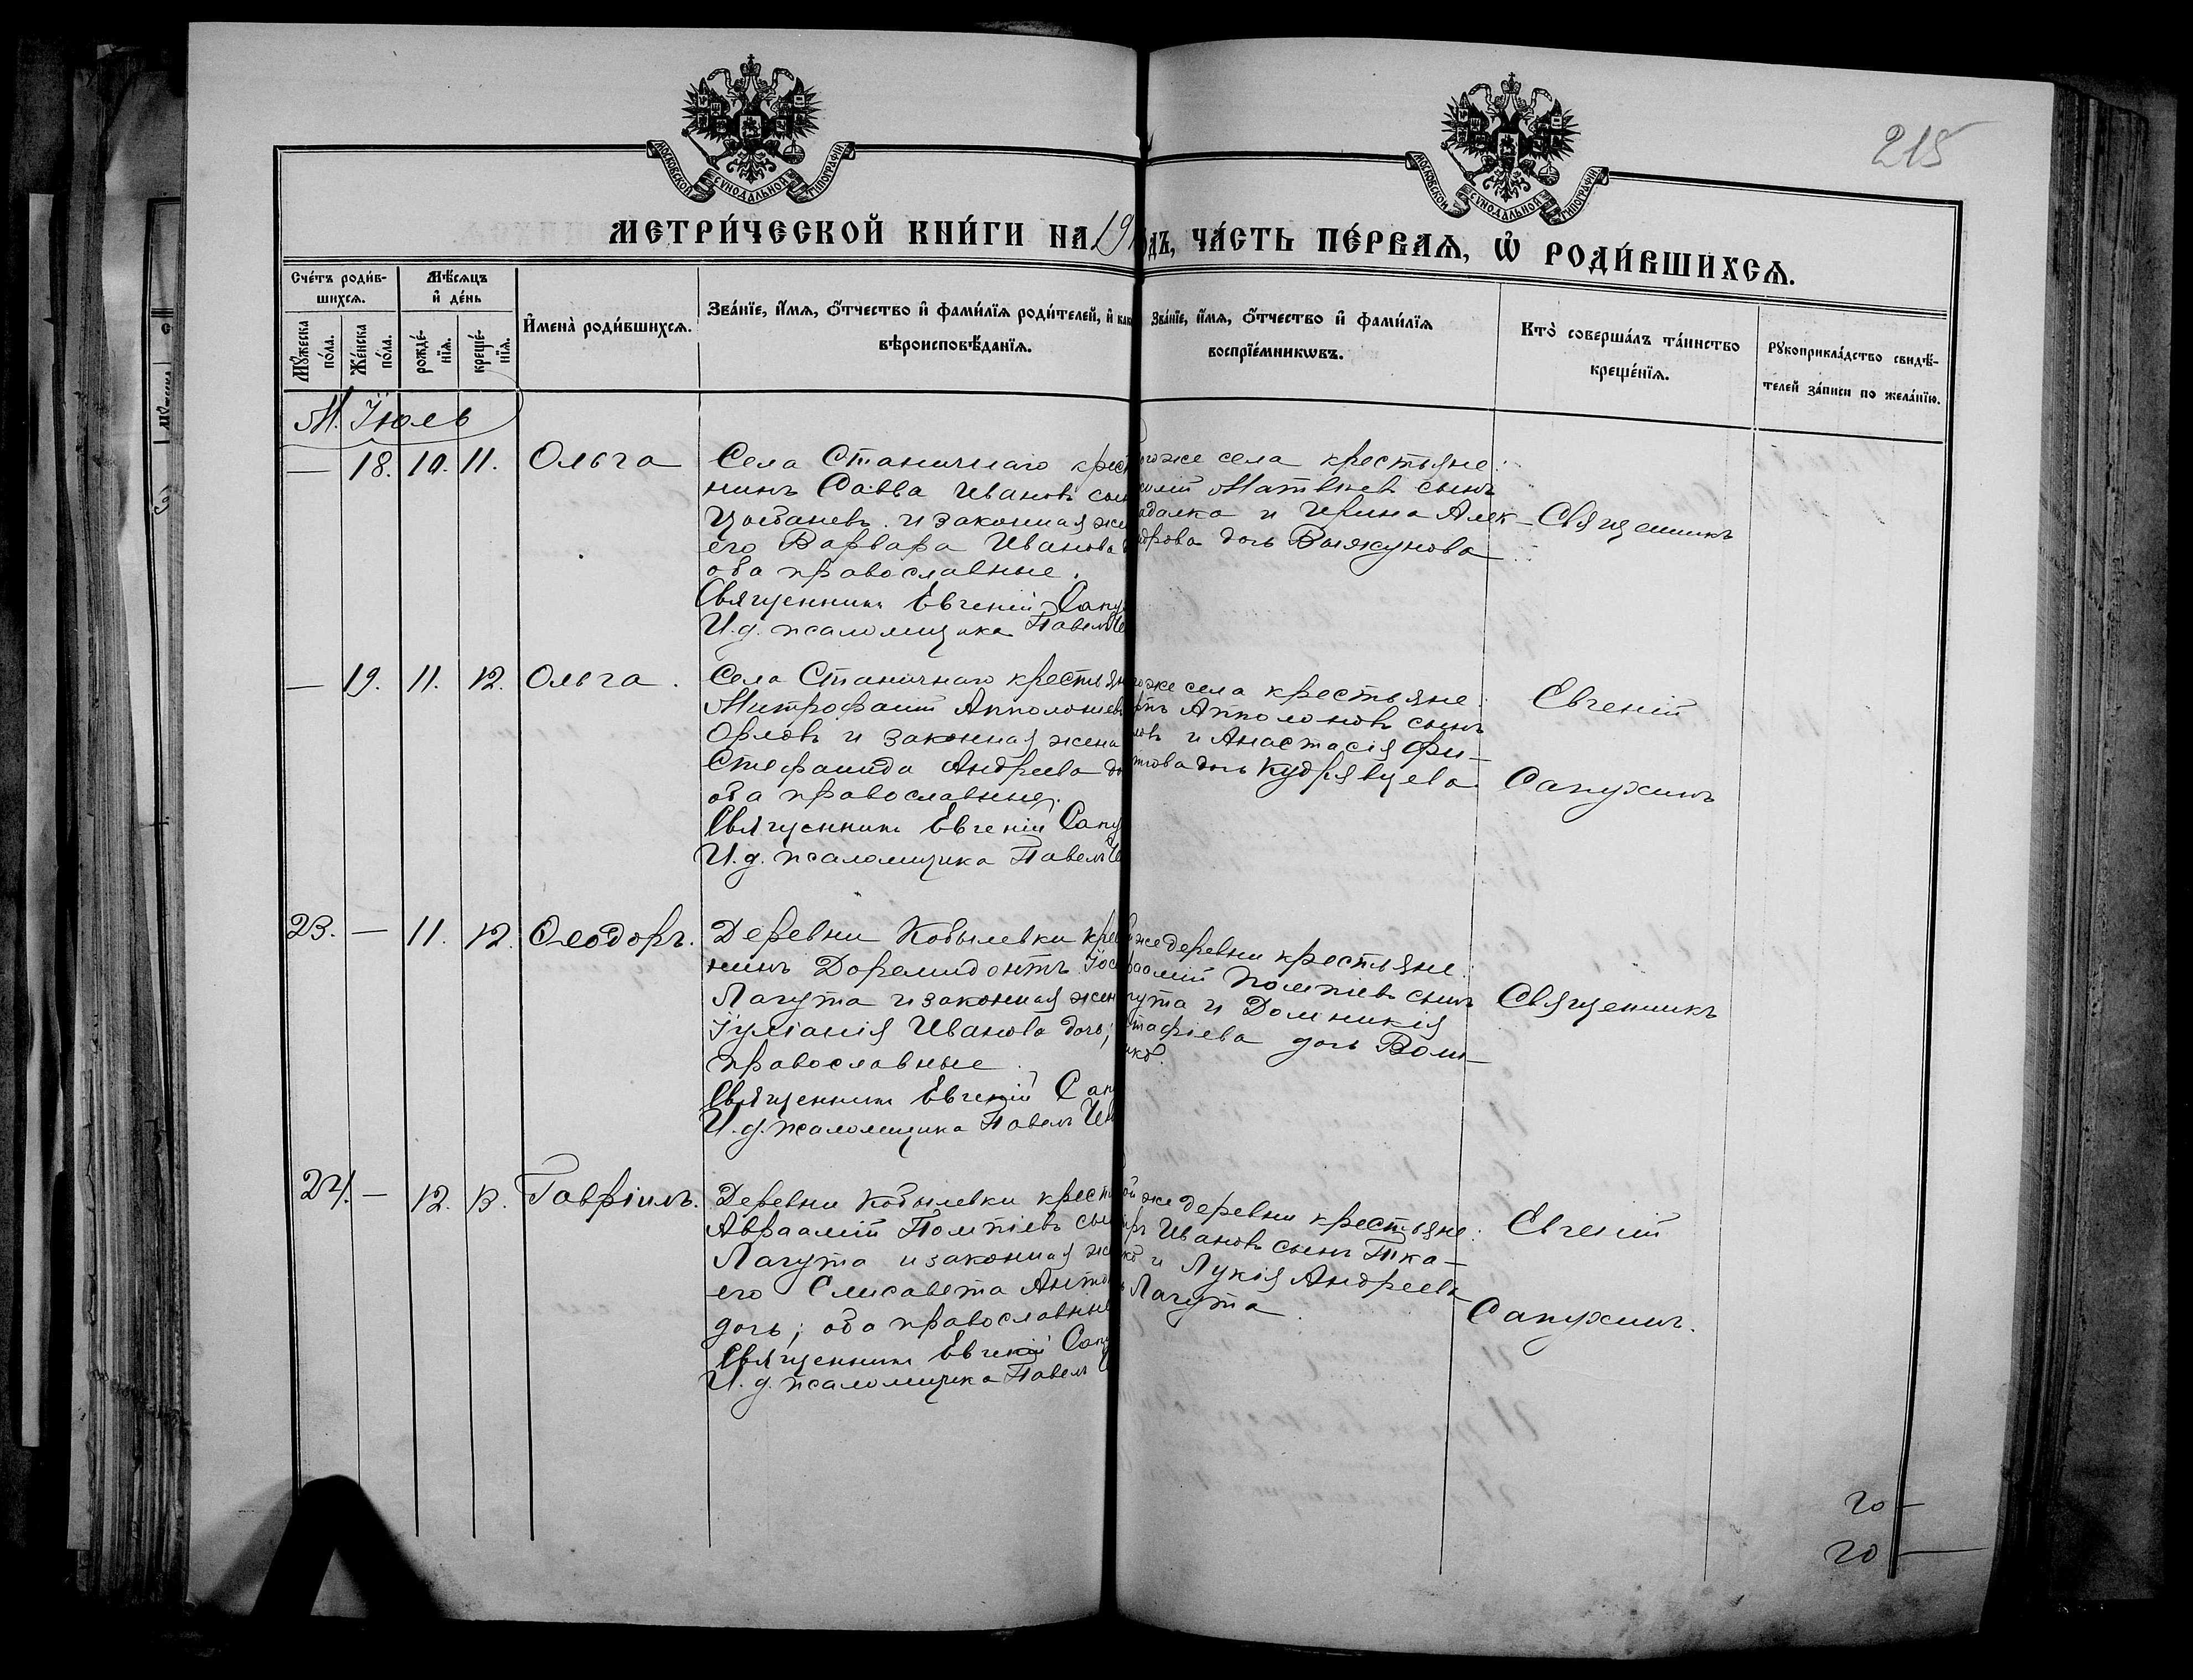 215
МОСКОВСКОЙ СѴНОДАЛЬНОЙ ТИПОГРАФІИ
МОСКОВСКОЙ СѴНОДАЛЬНОЙ ТИПОГРАФІИ
МЕТРИ́ЧЕСКОЙ КНИ́ГИ НА 19
ЧА́СТЬ ПЕ́РВАѦ, Ѡ҆ РОДИ́ВШИХСѦ.
Сче́тъ роди́в-
шихсѧ.
Мѣ́сѧцъ
и҆ де́нь
Мꙋ́жеска
по́ла.
Же́нска
по́ла.
рожде́-
нїѧ.
креще́-
нїѧ.
И҆мена̀ роди́вшихсѧ.
Зва́нїе, и҆́мѧ, ѻ҆́тчество и҆ фами́лїѧ роди́телей, и҆
вѣроисповѣ́данїѧ.
Зва́нїе, и҆́мѧ, ѻ҆́тчество и҆ фами́лїѧ
воспрїе́мникѡвъ.
Кто̀ соверша́лъ та́инство
креще́нїѧ.
Рꙋкоприкла́дство свидѣ́-
телей за́писи по жела́нїю.
М. Іюль
— 18. 10. 11. Ольга
Села Станичнаго крест
нинъ Савва Ивановъ сын
и законная же
его Варвара Иванова
оба православные.
Священникъ Евгеній Сапу
И. д. псаломщика Павелъ
огоже села крестьяне:
Матвѣевъ сынъ
и Ирина Алек-
дрова дочь
Священникъ
— 19. 11. 12. Ольга.
Села Станичнаго крестьян
Митрофанъ Апполоніевъ
Орловъ и законная жена
Стефанида Андреева до
оба православные.
Священникъ Евгеній Сапу
И. д. псаломщика Павелъ
оже села крестьяне:
Апполоновъ сынъ
ловъ и Анастасія Фи-
това дочь Кудрявцева
Евгеній
Сапухинъ
23. — 11. 12. Ѳеодоръ.
Деревни Кобылевки крес
нинъ Доремидонтъ Іос
Лагута и законная жен
Іуліанія Иванова дочь;
православные.
Священникъ Евгеній Сап
И. д. псаломщика Павелъ
же деревни крестьяне:
раамій Помпіевъ сынъ
гута и Домникія
стафіева дочь Воло-
Священникъ
24. — 12. 13. Гавріилъ.
Деревни Кобылевки крест
Авраамій Помпіевъ сын
Лагута и законная же
его Елисавета Анто
дочь; оба православные
Священникъ Евгеній Сапу
И. д. псаломщика Павелъ
ой же деревни крестьяне:
Ивановъ сынъ Тка-
и Лукія Андреева
Лагута.
Евгеній
Сапухинъ.
20 —
20 —